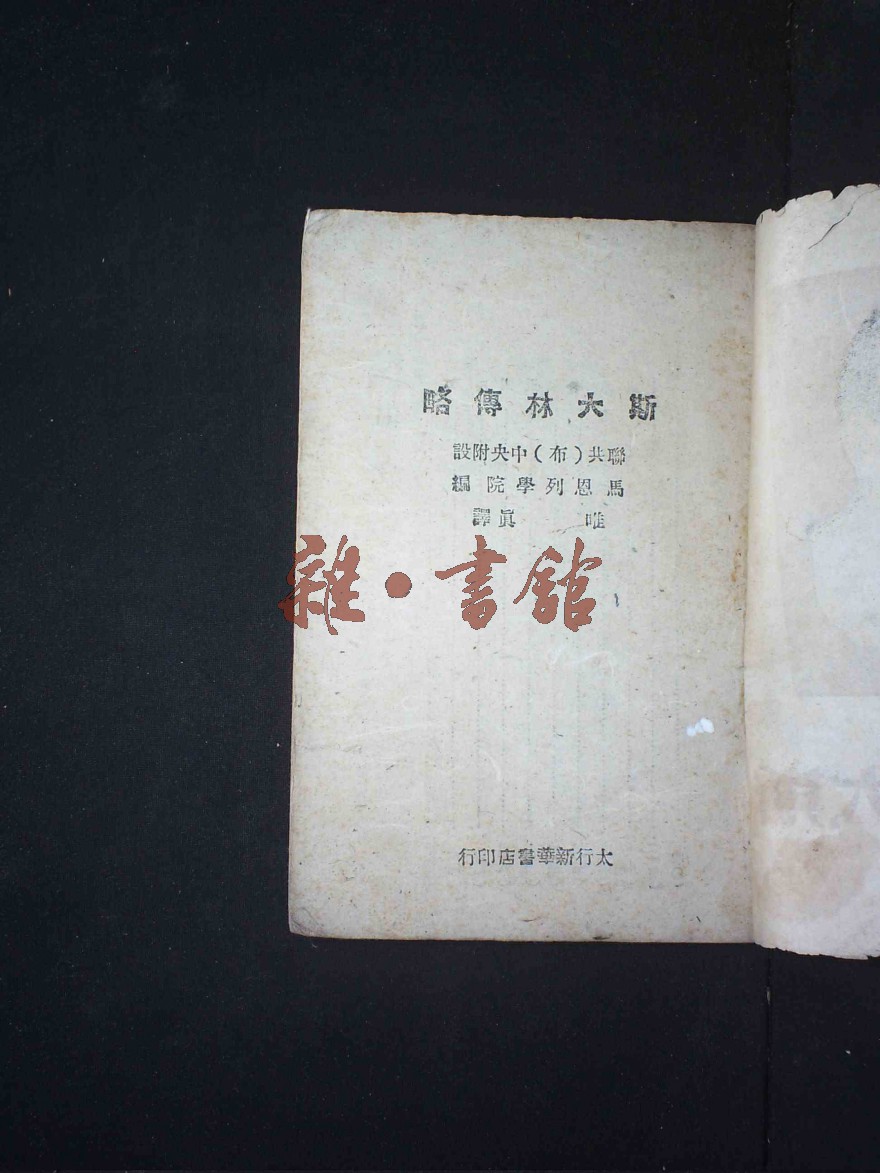 斯大林傳略
聯共（布）中央附設
馬恩列學院編
唯眞譯
雜·書館
太行新華書店印行